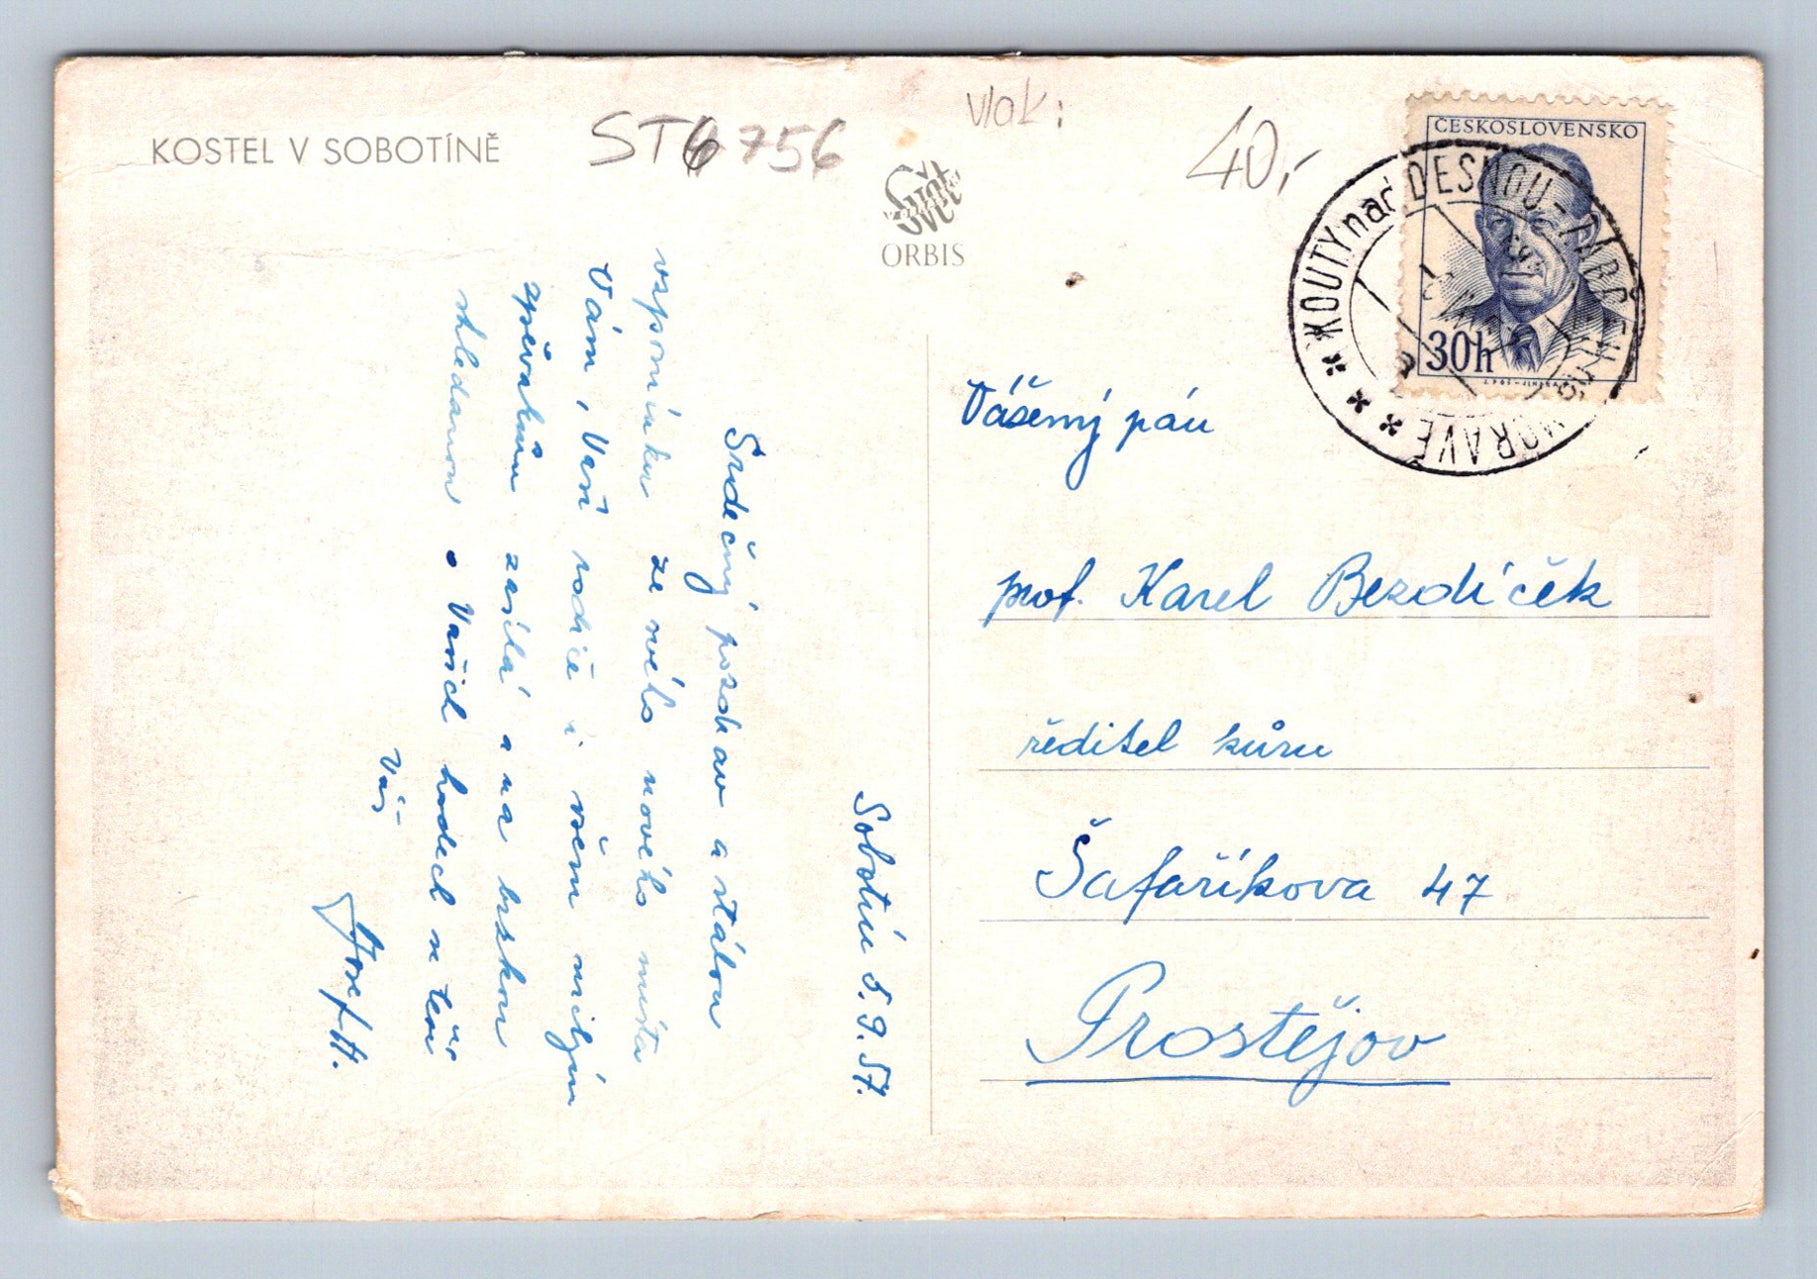 KOSTEL V SOBOTÍNĚ
ST6 756
vlak:
40,-
ORBIS
ČESKOSLOVENSKO
30h
KOUTY nad DESNOU - ZÁBŘEH na MORAVĚ
Sobotín 5.9.57.
Srdečný pozdrav a stálou
vzpomínku ze svého nového místa
Vám, Vaší rodičě i všem milým
zpěvákům zasílá a na brzkou
shledanou o Vašich hodech se těší
Váš
Josef H.
Vážený pán
prof. Karel Bezdíček
ředitel kůru
Šafaříkova 47
Prostějov